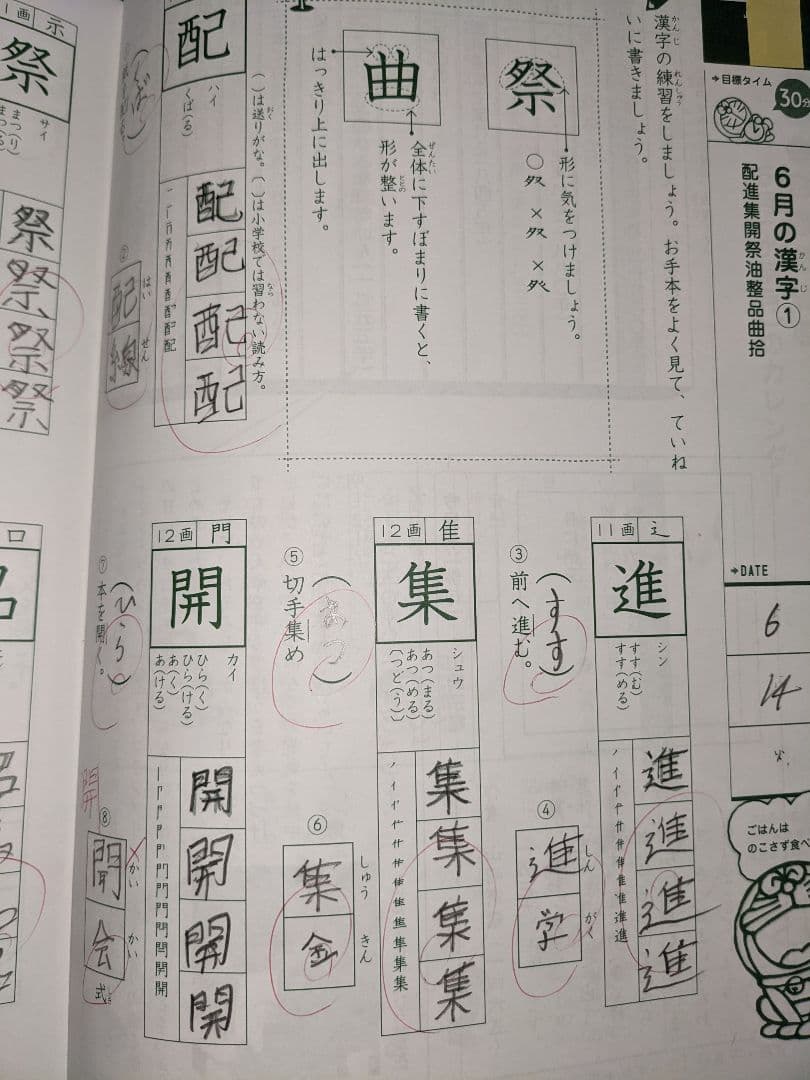 30分
→目標タイム
6月の漢字①
かんじ
配進集開祭油整品曲拾
→DATE
6
14
ごはんは
のこさず食べ
漢字の練習をしましょう。お手本をよく見て、ていね
かんじ
れんしゅう
いに書きましょう。
祭
形に気をつけましょう。
曲
全体に下すぼまりに書くと、
ぜんたい
形が整います。
ととの
はっきり上に出します。
( )は送りがな。〔 〕は小学校では習わない読み方。
おく
なら
配
ハイ
くば(る)
配
配
配
配
(くば)
②
配線
はい
せん
11画
進
シン
すす(む)
すす(める)
進
進
進
進
③
前へ進む。
(すす)
④
進学
しん
がく
12画
隹
集
シュウ
あつ(まる)
あつ(める)
〔つど(う)〕
集
集
集
集
⑤
切手集め
(あつ)
⑥
集金
しゅう
きん
12画
門
開
カイ
ひら(く)
ひら(ける)
あ(く)
あ(ける)
開
開
開
開
⑦
本を開く。
(ひら)
⑧
開
開会式
かい
かい
しき
1画
示
祭
サイ
まつ(り)
まつ(る)
祭
祭
祭
祭
口